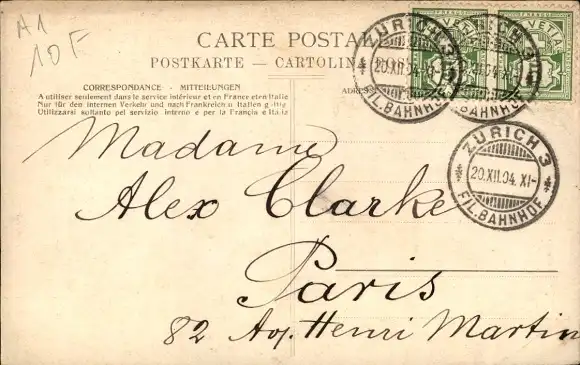 A1
10 F
CARTE POSTALE
POSTKARTE — CARTOLINA
CORRESPONDANCE - MITTEILUNGEN
A utiliser seulement dans le service intérieur et en France et en Italie
Nur für den internen Verkehr und nach Frankreich u Italien gültig
Utilizzarsi soltanto pel servizio interno e per la Francia e Italia
FRANCO
HELVETIA
ZÜRICH 3
20.XII.04. XI-
FIL. BAHNHOF
ZÜRICH 3
20.XII.04. XI-
FIL. BAHNHOF
Madame
Alex Clarke
Paris
82 Av. Henri Martin